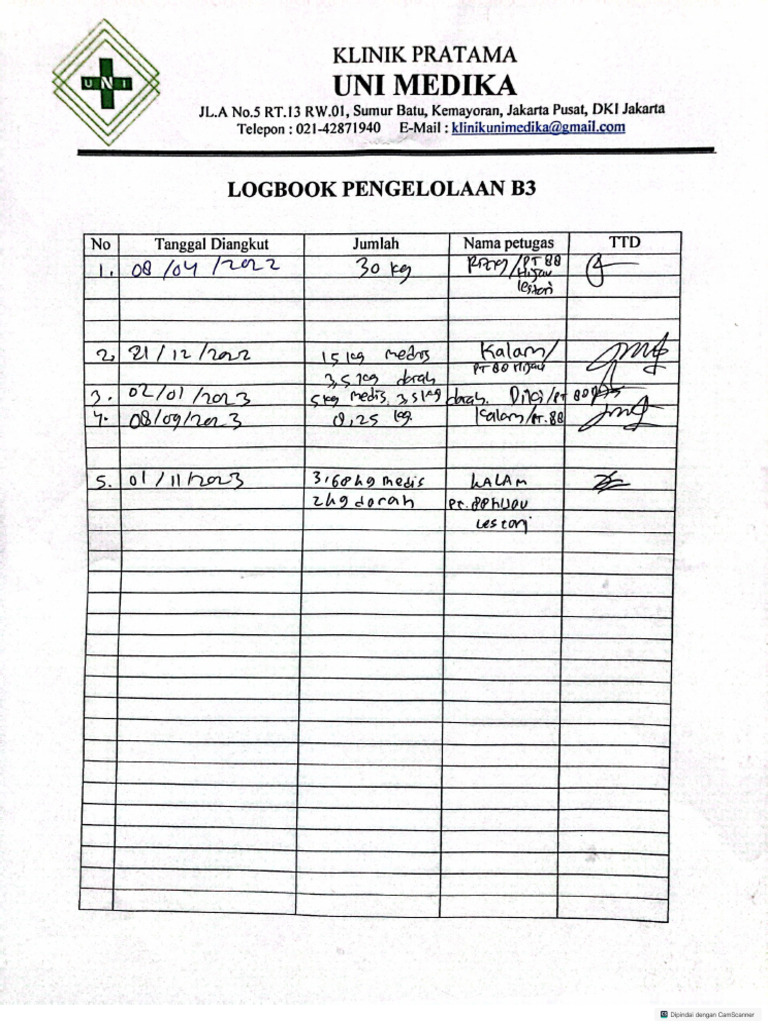 UNI
KLINIK PRATAMA
UNI MEDIKA
JL.A No.5 RT.13 RW.01, Sumur Batu, Kemayoran, Jakarta Pusat, DKI Jakarta
Telepon : 021-42871940 E-Mail : klinikunimedika@gmail.com
LOGBOOK PENGELOLAAN B3
No Tanggal Diangkut Jumlah Nama petugas TTD
1. 08/04/2022 30 kg /PT 88
Hijau
lestari
2, 21/12/2022 15 kg medis Kalam/
3,5 kg darah PT 88 Hijau
3. 02/01/2023 5 kg medis, 3,5 kg darah. /PT 88
4. 08/09/2023 ,25 kg. Kalam/PT.88
5. 01/11/2023 3,68 kg medis KALAM
2 kg darah PT. 88 hijau
Lestari
Dipindai dengan CamScanner